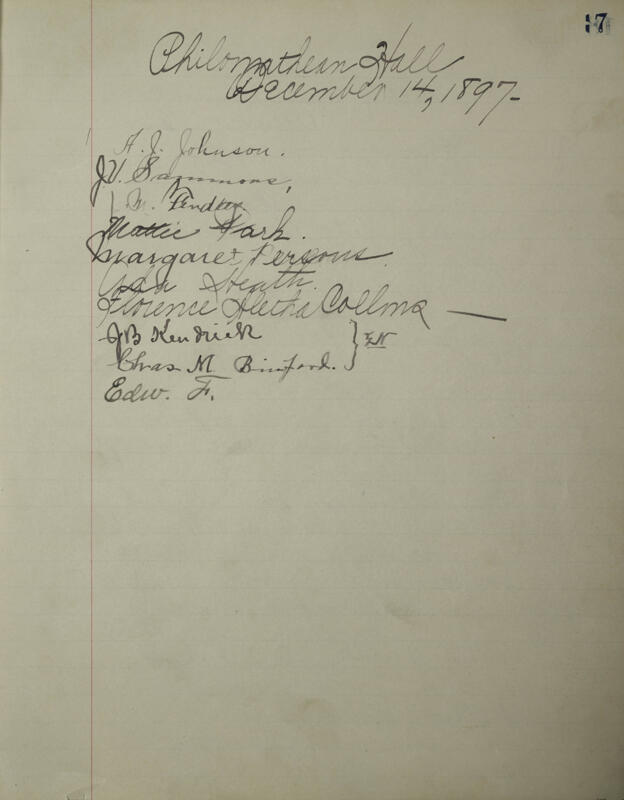 17
Philomathean Hall
December 14, 1897-
A. J. Johnson.
J. V. Sammons,
M.
Mattie Park.
Margaret Persons.
Heath.
Florence Aletha Collins
J B Kendrick
Chas M Binford.
Edw. F.